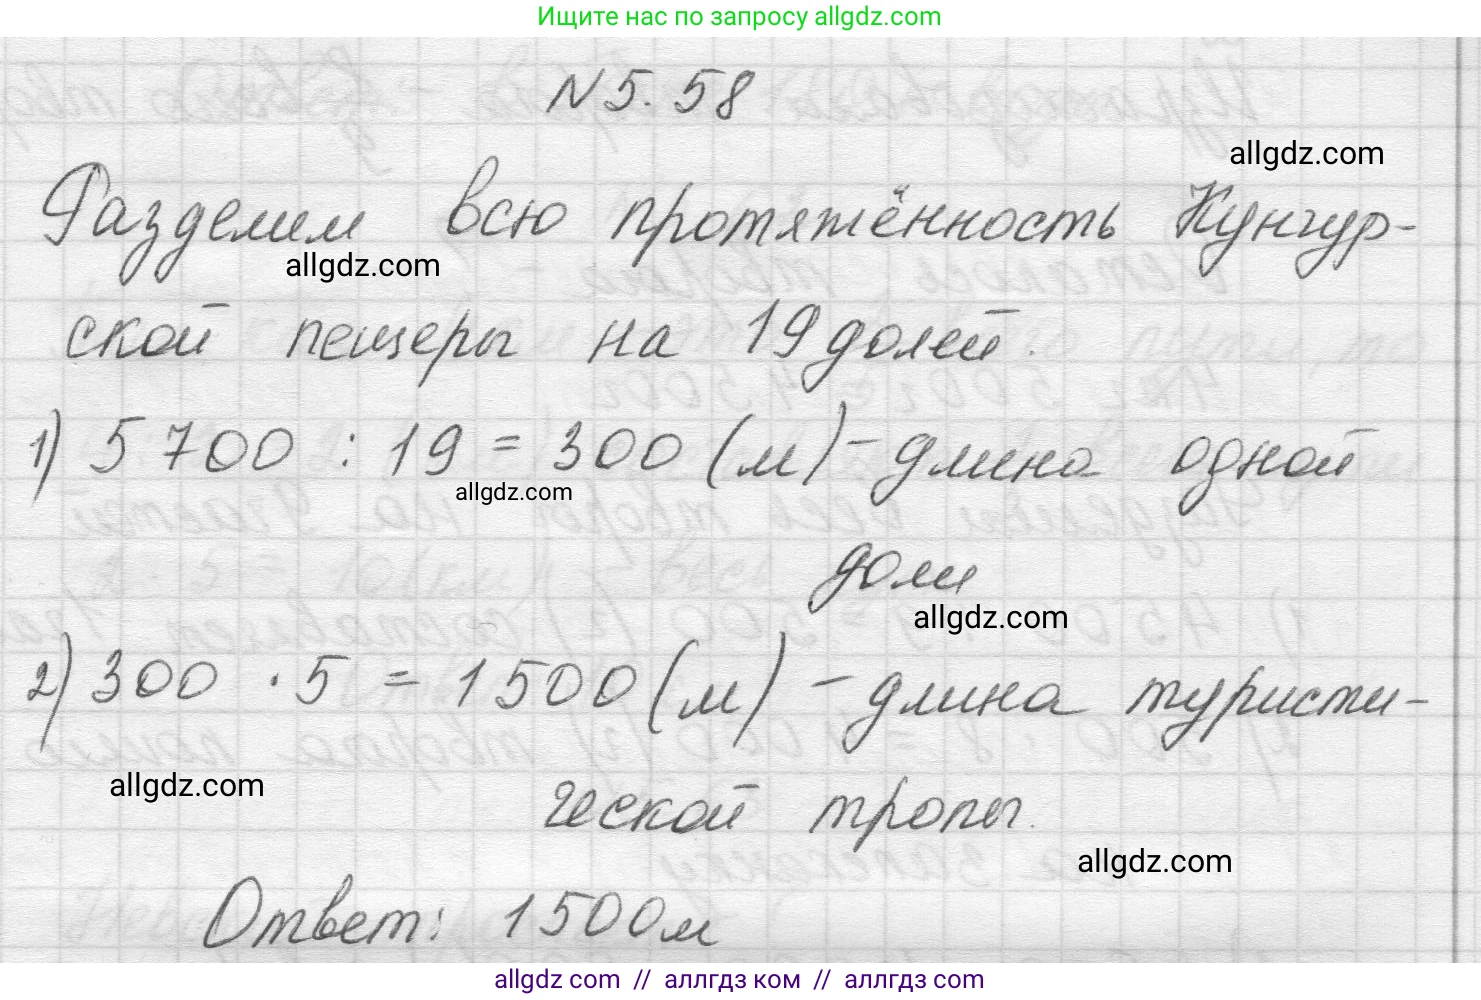 Ищите нас по запросу allgdz.com
N 5. 58
allgdz.com
Разделим всю протяжённость Кунгур-
allgdz.com
ской пещеры на 19 долей.
1) 5 700 : 19 = 300 (м) - длина одной
allgdz.com
доли
allgdz.com
2) 300 · 5 = 1 500 (м) - длина туристи-
allgdz.com
ческой тропы.
allgdz.com
Ответ: 1 500 м
allgdz com // аллгдз ком // аллгдз com